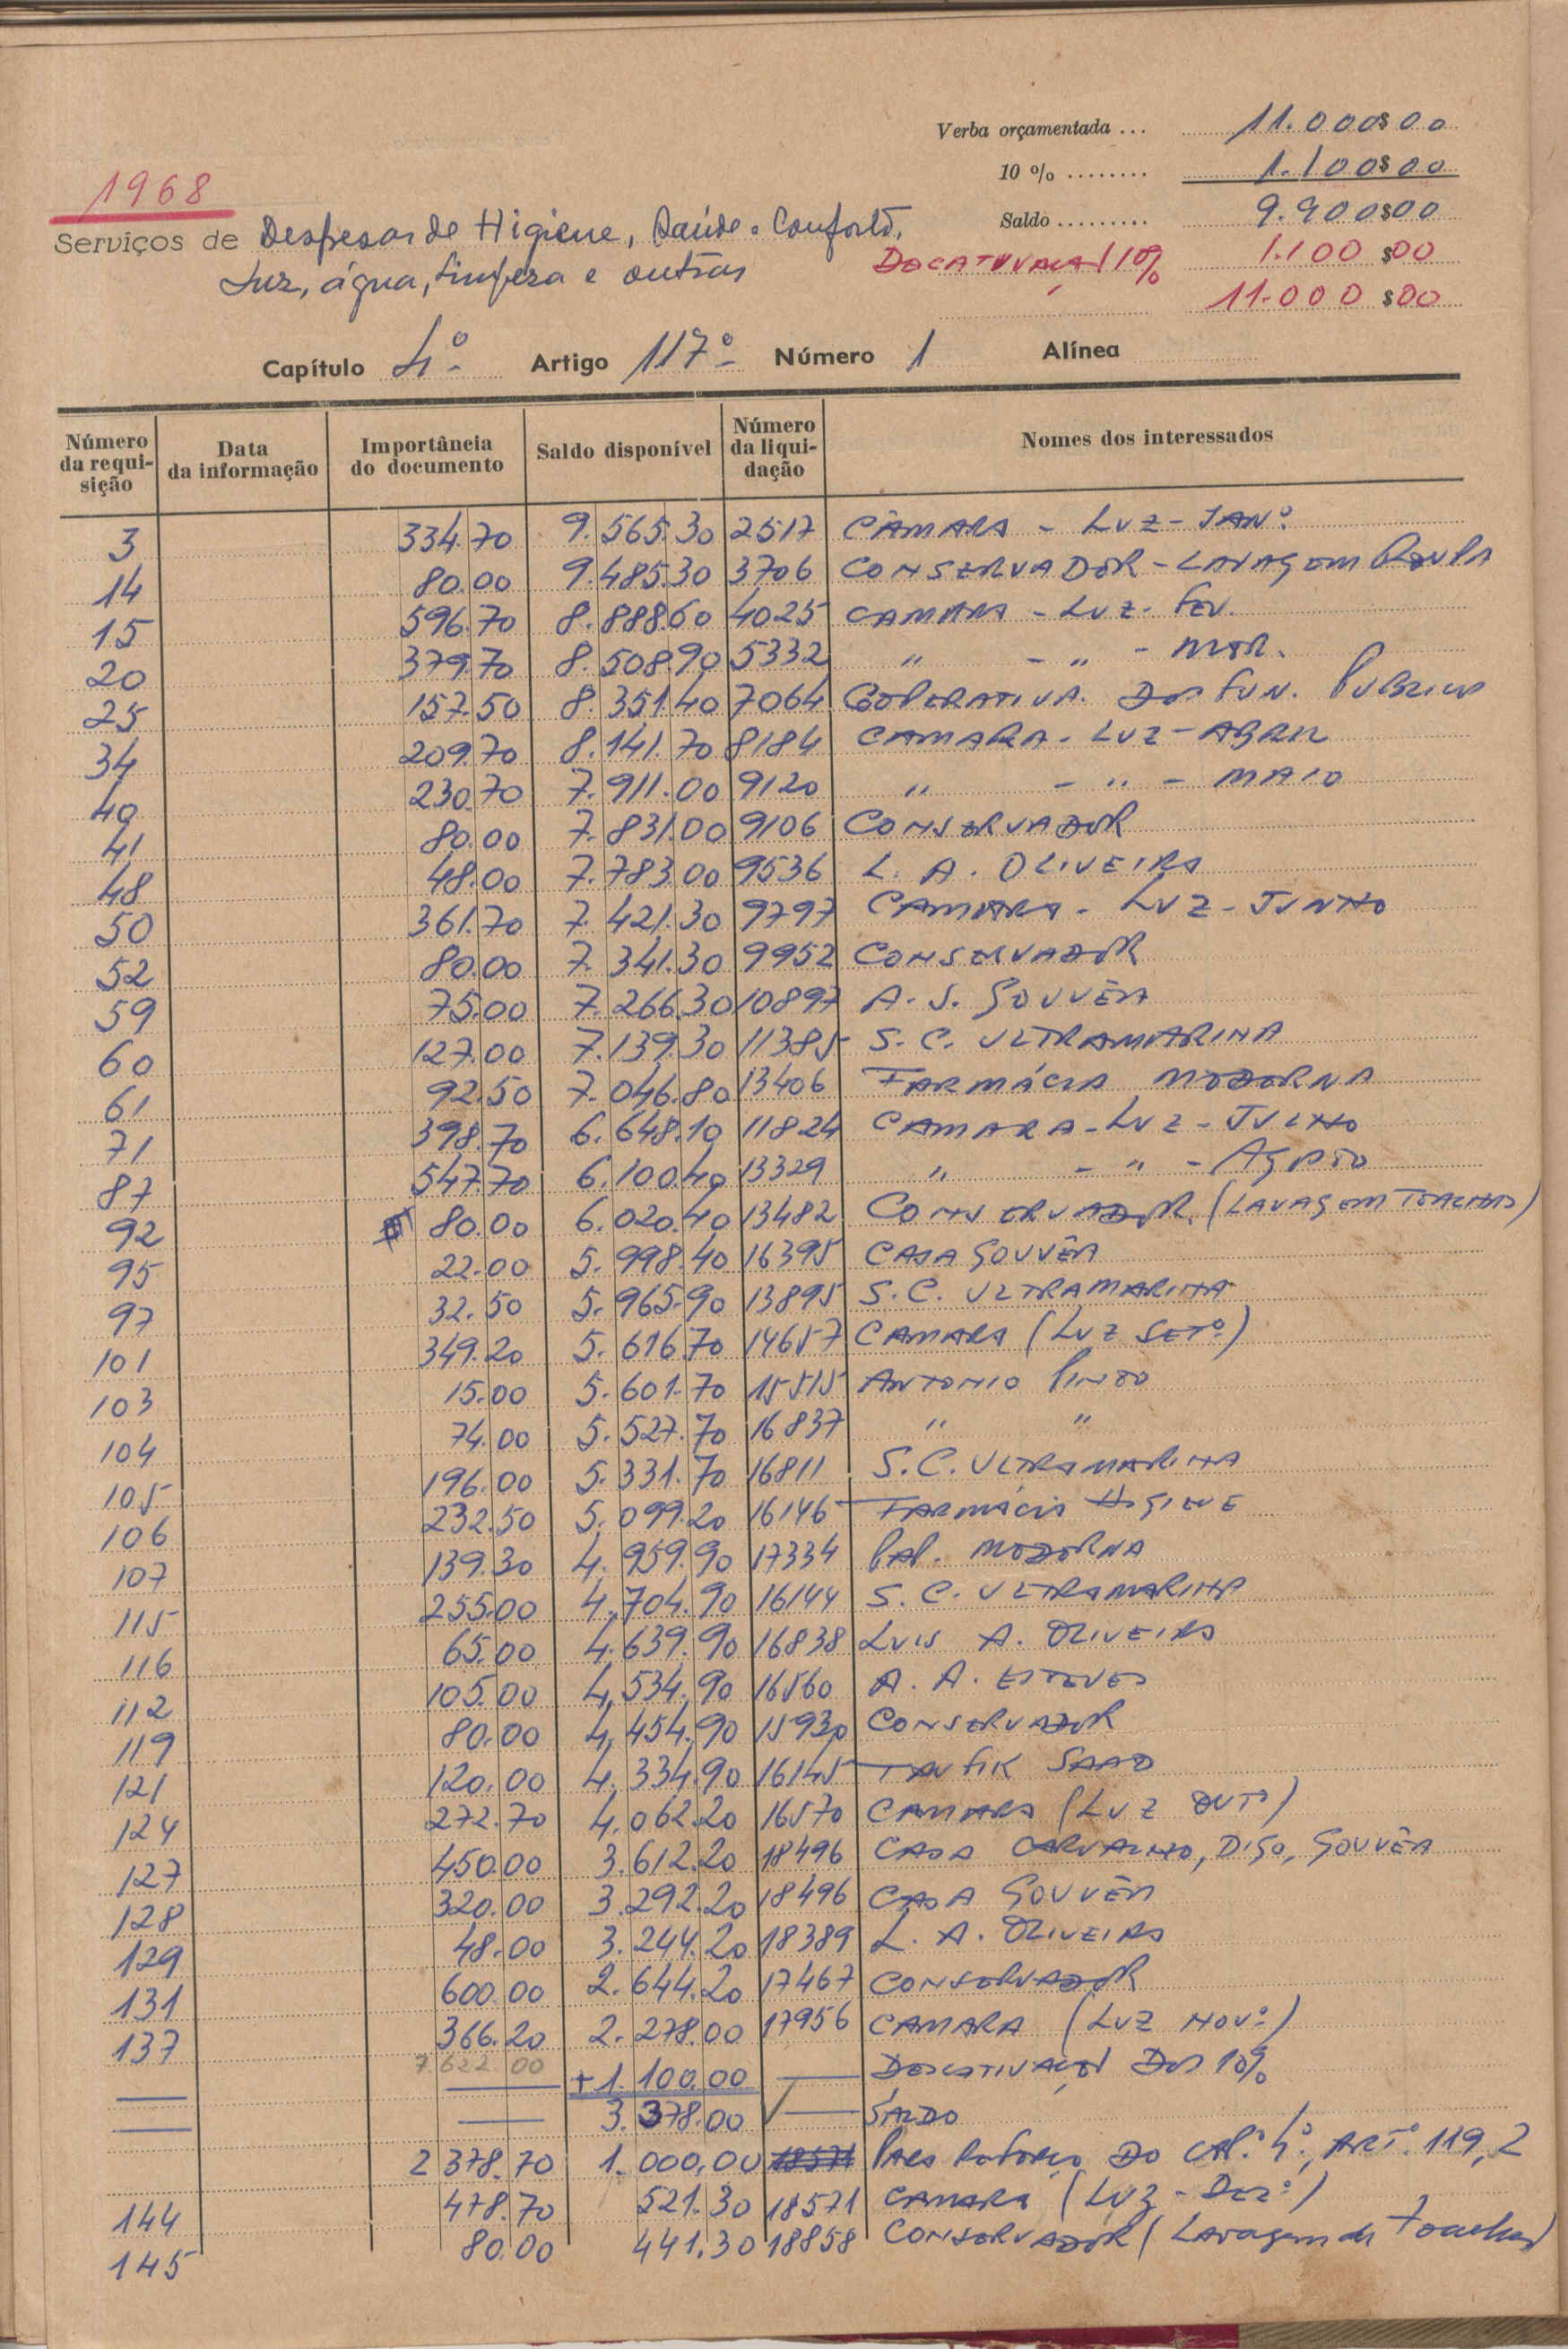 Verba orçamentada ... 11.000$00
10 % ........ 1.100$00
1968
Saldo ......... 9.900$00
Serviços de Despesas de Higiene, Saúde e Conforto,
1.100$00
Luz, água, limpeza e outras
10%
11.000$00
Capítulo 4º Artigo 117º Número 1 Alínea
Número da requisição Data da informação Importância do documento Saldo disponível Número da liquidação Nomes dos interessados
3 334.70 9.565.30 2517 CÂMARA - LUZ - JANº
14 80.00 9.485.30 3706 CONSERVADOR - LAVAGEM ROUPA
15 596.70 8.888.60 4025 CAMARA - LUZ - FEV.
20 379.70 8.508.90 5332 " - " - MAR.
25 157.50 8.351.40 7064 COOPERATIVA DOS FUN. PUBLICOS
34 209.70 8.141.70 8184 CAMARA - LUZ - ABRIL
40 230.70 7.911.00 9120 " - " - MAIO
41 80.00 7.831.00 9106 CONSERVADOR
48 48.00 7.783.00 9536 L. A. OLIVEIRA
50 361.70 7.421.30 9797 CAMARA - LUZ - JUNHO
52 80.00 7.341.30 9952 CONSERVADOR
59 75.00 7.266.30 10897 A. S. GOUVÊA
60 127.00 7.139.30 11385 S. C. ULTRAMARINA
61 92.50 7.046.80 13406 FARMÁCIA MODERNA
71 398.70 6.648.10 11824 CAMARA - LUZ - JULHO
87 547.70 6.100.40 13329 " - " - AGOSTO
92 80.00 6.020.40 13482 CONSERVADOR (LAVAGEM TOALHAS)
95 22.00 5.998.40 16395 CASA GOUVÊA
97 32.50 5.965.90 13895 S. C. ULTRAMARINA
101 349.20 5.616.70 14657 CAMARA (LUZ SETº)
103 15.00 5.601.70 15515 ANTONIO PINTO
104 74.00 5.527.70 16837 " "
105 196.00 5.331.70 16811 S. C. ULTRAMARINA
106 232.50 5.099.20 16146 FARMÁCIA HIGIENE
107 139.30 4.959.90 17334 PAP. MODERNA
115 255.00 4.704.90 16144 S. C. ULTRAMARINA
116 65.00 4.639.90 16838 LUIS A. OLIVEIRA
112 105.00 4.534.90 16560 A. A. ESTEVES
119 80.00 4.454.90 15930 CONSERVADOR
121 120.00 4.334.90 16145 TAUFIK SAAD
124 272.70 4.062.20 16570 CAMARA (LUZ OUTº)
127 450.00 3.612.20 18496 CASA CARVALHO, DIGO, GOUVÊA
128 320.00 3.292.20 18496 CASA GOUVÊA
129 48.00 3.244.20 18389 L. A. OLIVEIRA
131 600.00 2.644.20 17467 CONSERVADOR
137 366.20 2.278.00 17956 CAMARA (LUZ NOVº)
7.622.00 + 1.100.00 DOS 10%
3.378.00 SALDO
2 378.70 1.000.00 18571 PARA REFORÇO DO CAP.º 4º, ARTº. 119, 2
144 478.70 521.30 18571 CAMARA (LUZ - DEZº)
145 80.00 441.30 18858 CONSERVADOR (Lavagem de toalhas)